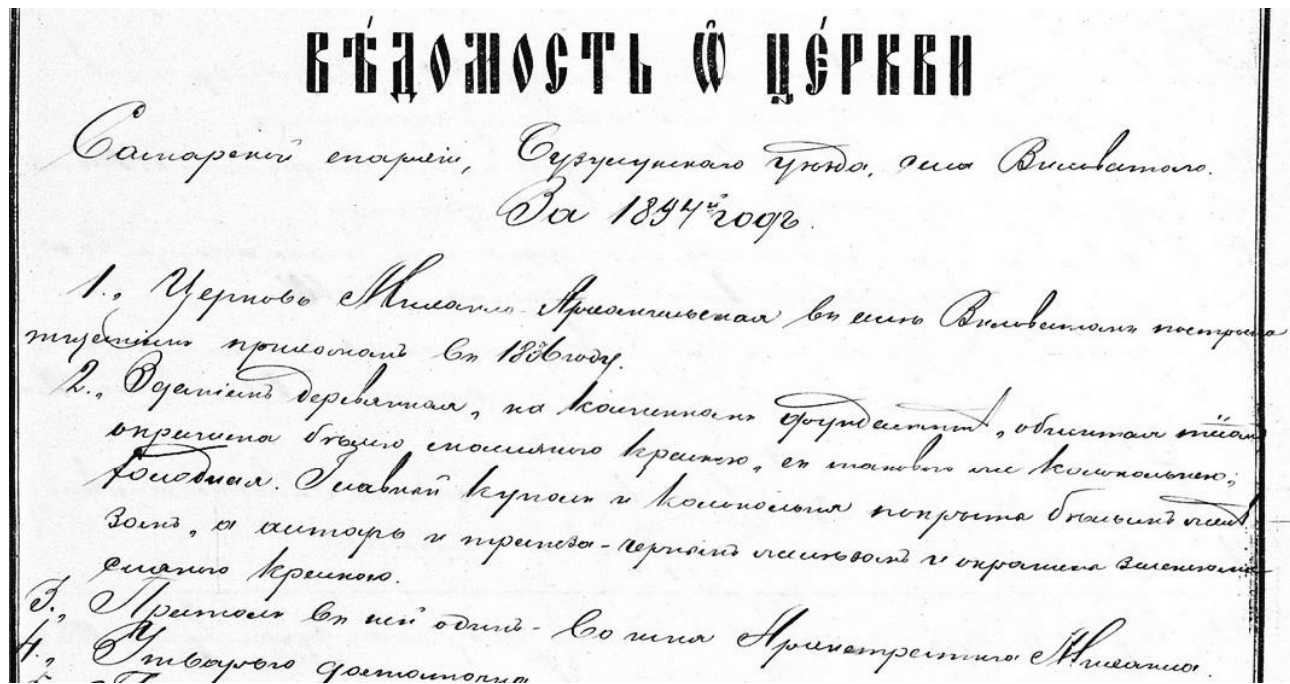 ВѢ́ДОМОСТЬ Ѽ ЦЕ́РКВИ
Самарской епархіи, Бузулукскаго уѣзда, села Виловатого.
За 1894й годъ.
1., Церковь Михаило-Архангельская въ селѣ Виловатомъ построена
тщаніемъ прихожанъ въ году.
2., Зданіемъ деревянная, на каменномъ фундаментѣ, обшитая тёсомъ
окрашена бѣлою масляною краскою, съ таковою же колокольнею;
холодная. Главный куполъ и колокольня покрыта бѣлымъ желѣ
зомъ, а алтарь и трапеза-чернымъ желѣзомъ и окрашена зеленою ма
сляною краскою.
3., Престолъ въ ней одинъ-во имя Архистратига Михаила.
4., Утварью достаточна